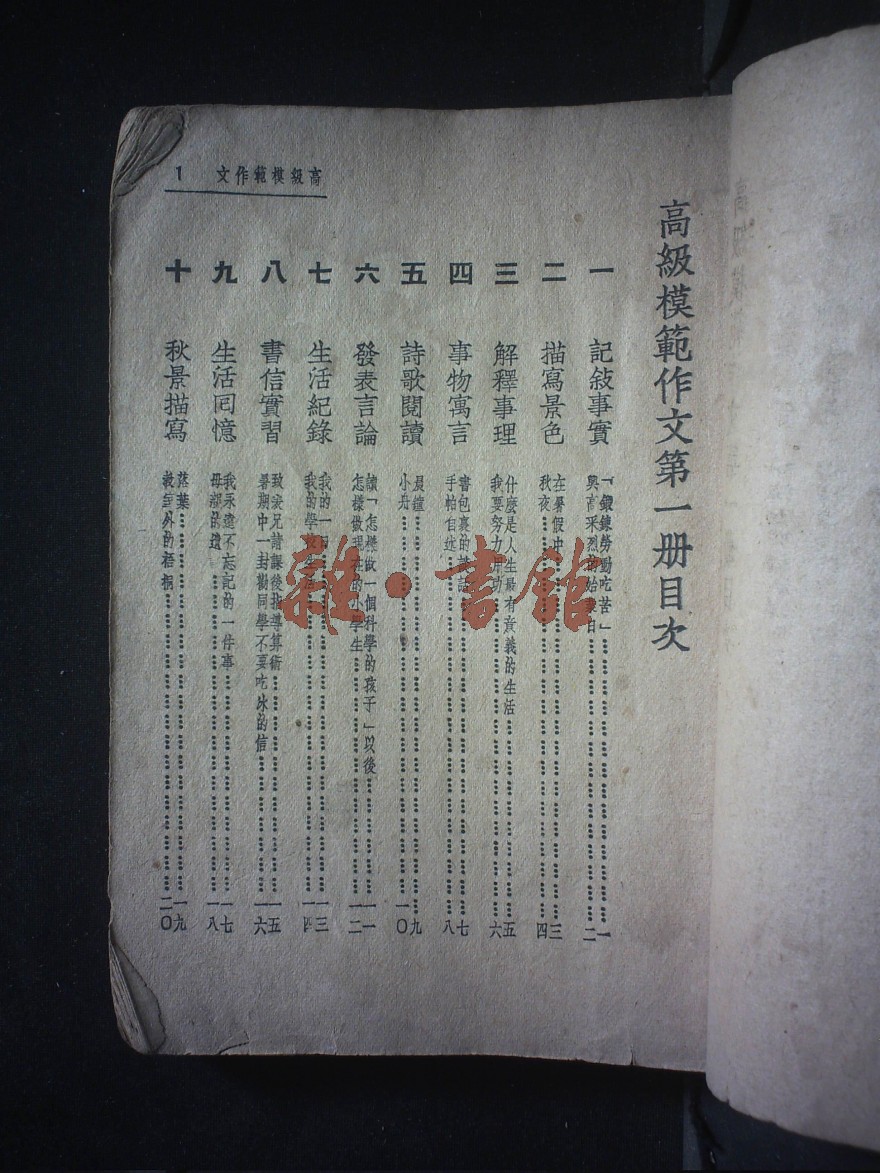 高級模範作文 1
高級模範作文第一册目次
一 記敍事實
「鍛鍊勞動吃苦」 一
興高采烈的始業日 二
二 描寫景色
在暑假中 三
秋夜 四
三 解釋事理
什麼是人生最有意義的生活 五
我要努力用功 六
四 事物寓言
書包裏的談話 七
手帕自述 八
五 詩歌閱讀
晨鐘 九
小舟 一〇
六 發表言論
讀「怎樣做一個科學的孩子」以後 一一
怎樣做現在的小學生 一二
七 生活紀錄
我的一日 一三
我的學校生活 一四
八 書信實習
致 兄請課後指導算術 一五
暑期中一封勸同學不要吃冰的信 一六
九 生活回憶
我永遠不忘記的一件事 一七
母親的 一八
十 秋景描寫
落葉 一九
教室外的梧桐 二〇
雜·書館